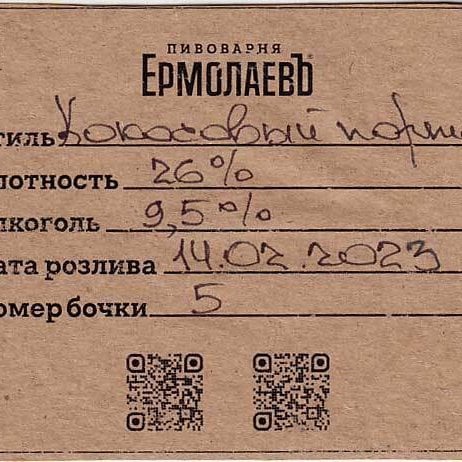 ПИВОВАРНЯ
ЕРМОЛАЕВЪ
тиль Кокосовый порте
лотность 26%
лкоголь 9,5%
ата розлива 14.02.2023
омер бочки 5